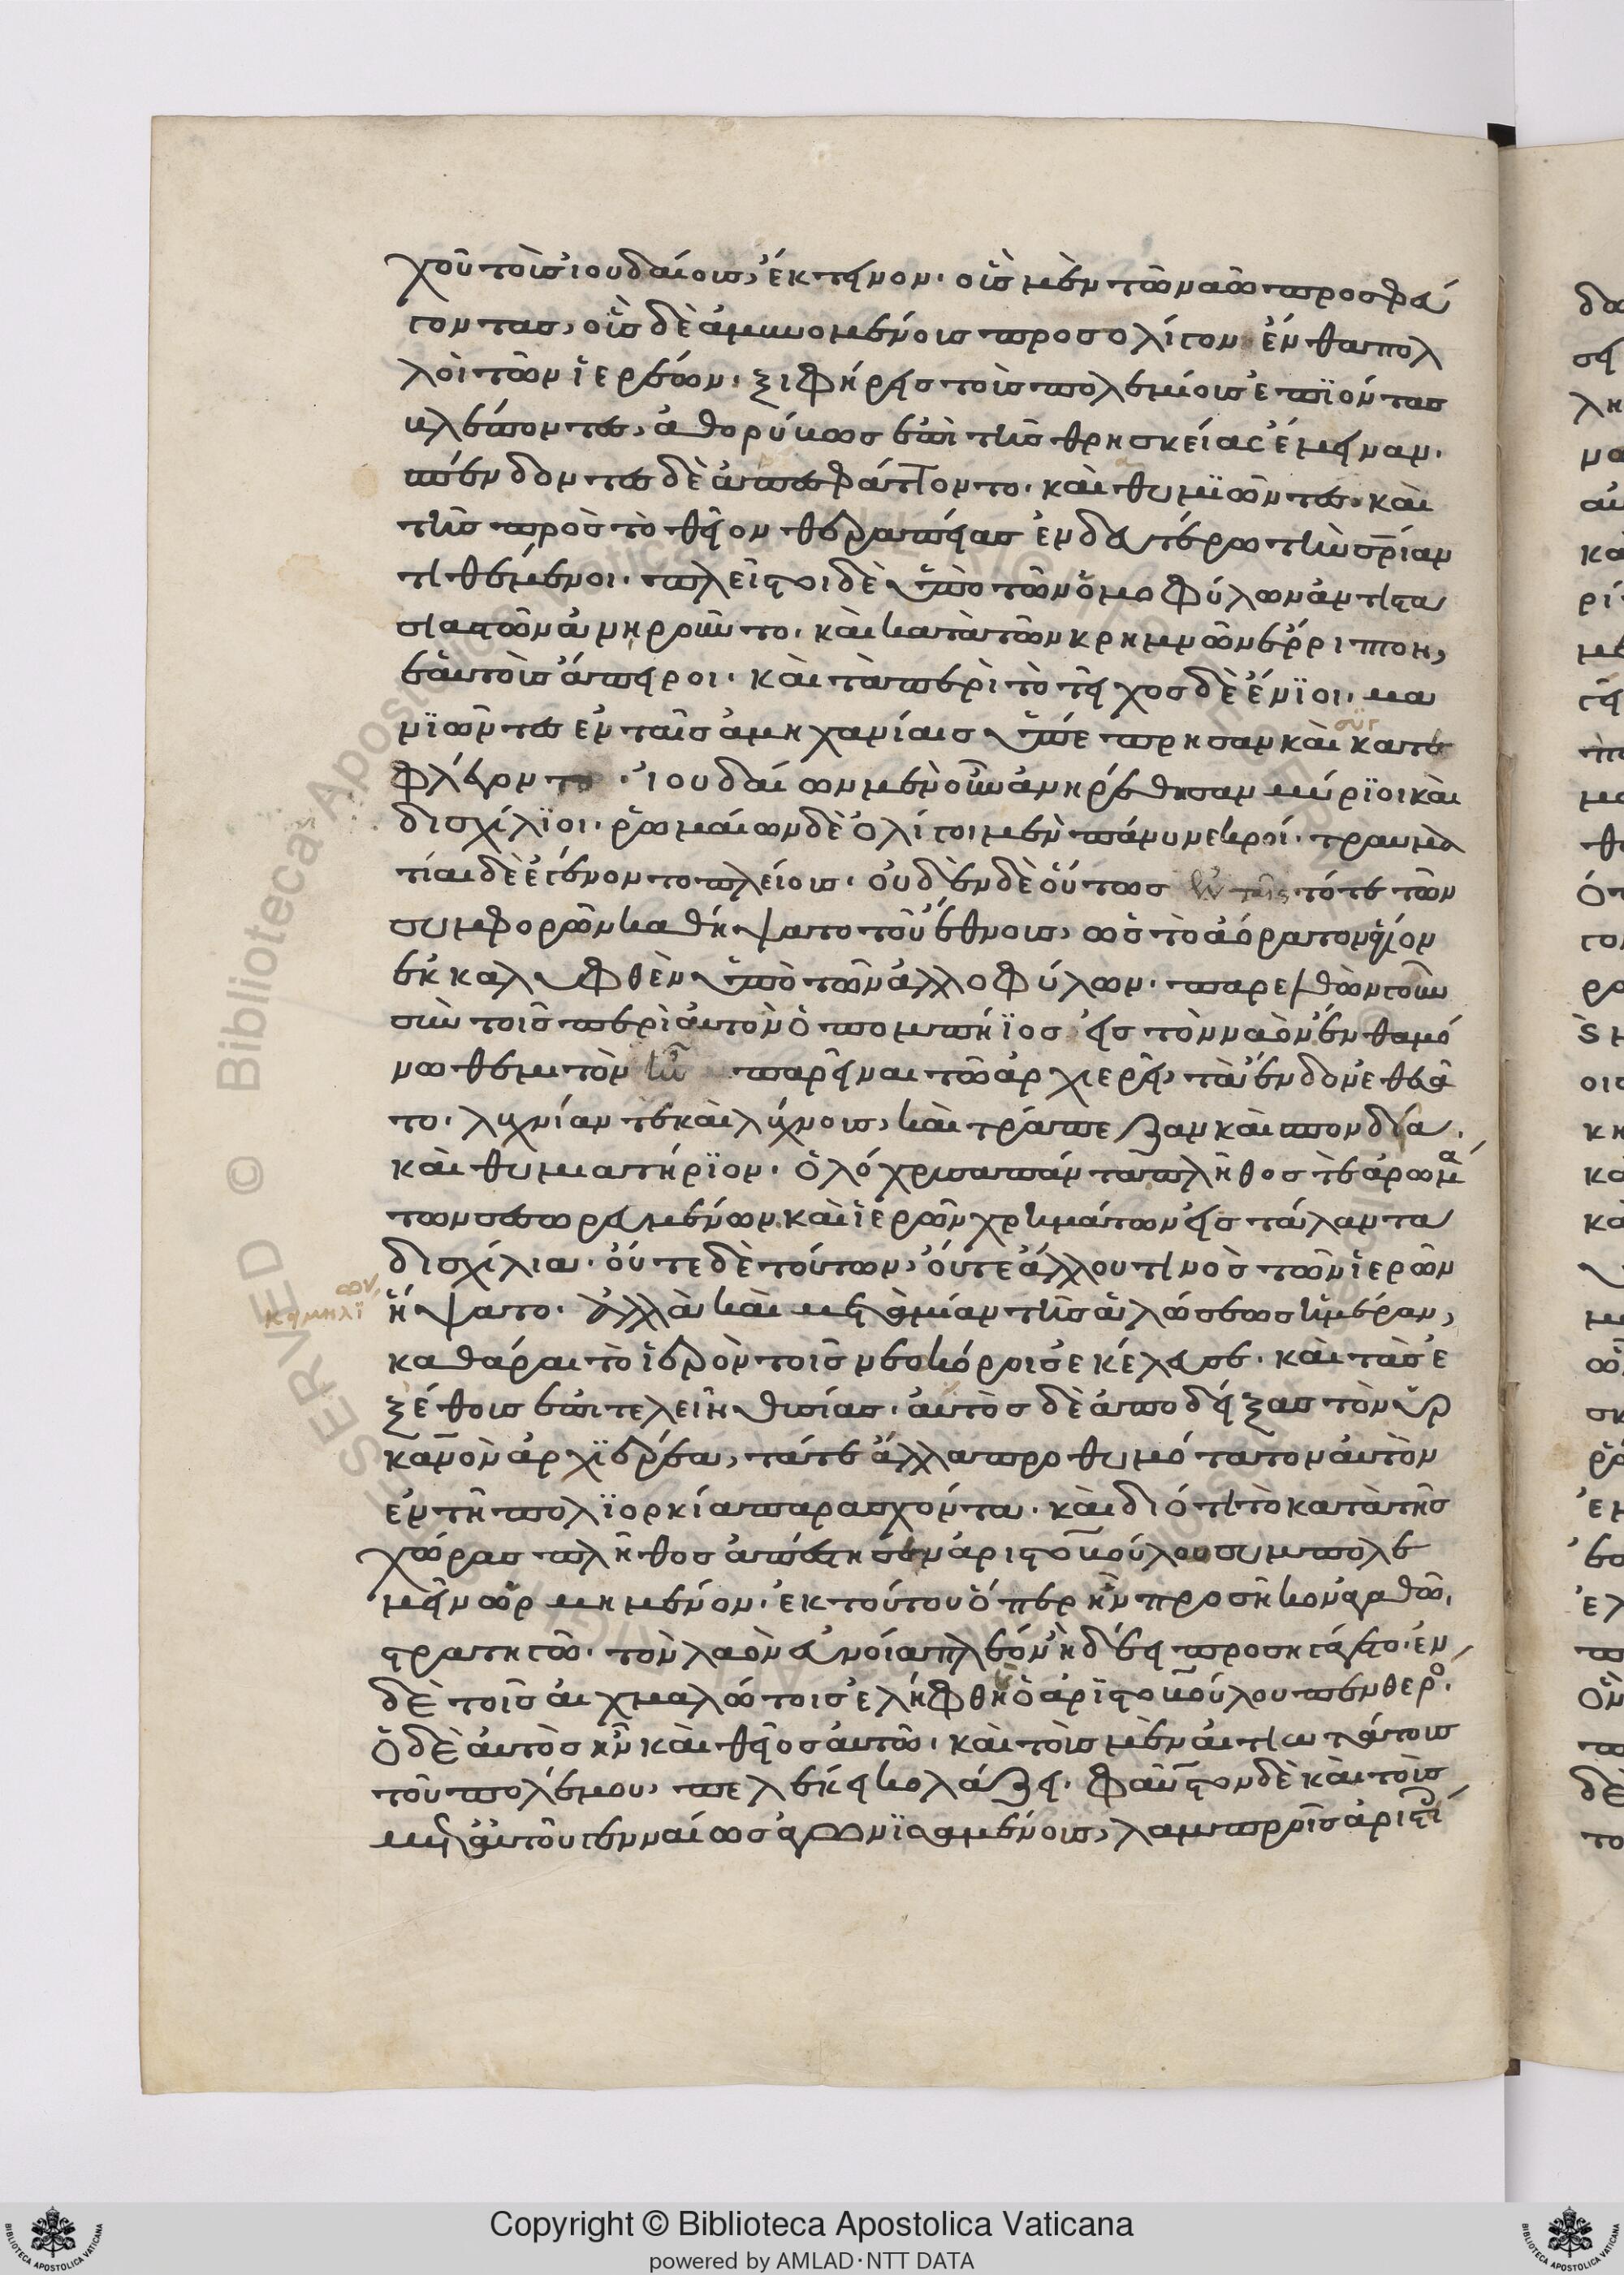 χοῦ τοὺς ἰουδαίους, ἔκτεινον. οὓς μὲν τῶ ναῶ προσφεύ
γοντας, οὓς δὲ ἀμυνομένους πρὸς ὀλίγον ἔνθα πολ
λοὶ τῶν ἱερέων. ξιφήρεις τοὺς πολεμίους ἐπϊόντας
βλέποντες, ἀθορύβως ἐπὶ τῆς θρησκείας ἔμειναν.
σπένδοντες δὲ ἀπεσφάττοντο. καὶ θυμϊῶντες. καὶ
τῆς πρὸς τὸ θεῖον θεραπείας ἐν δευτέρω τὴν σρίαν
τιθέμενοι. πλεῖστοι δὲ ὑπὸ τῶν ὁμοφύλων ἀντιστα
σιαστῶν ἀνηροῦντο. καὶ κατὰ τῶν κρημνῶν ἔρριπτον,
ἑαυτοὺς ἄπειροι. καὶ τὰ περὶ τὸ τεῖχος δὲ ἔνϊοι. μα
νϊῶντες ἐν ταῖς ἀμηχανίαις ὑπέπρησαν καὶ κατε
συγ
φλέγοντο. ἰουδαίων μὲν οὖν ἀνηρέθησαν μύρϊοι καὶ
δισχίλϊοι. ῥωμαίων δὲ ὀλίγοι μὲν πάνυ νεκροί. τραυμα
τίαι δὲ ἐγένοντο πλείους. οὐδὲν δὲ οὕτως ἐν ταῖς τότε τῶν
συμφορῶν καθήψατο τοῦ ἔθνους, ὡς τὸ ἀόρατον ἅγιον
ἐκκαλυφθὲν ὑπὸ τῶν ἀλλοφύλων. παρελθὼν γοῦν
σὺν τοῖς περὶ αὐτὸν ὁ πομπήϊος εἰς τὸν ναὸν ἔνθα μό
νω θεμιτὸν ἦν παρεῖναι τῶ ἀρχιερεῖ, τὰ ἔνδον ἐθεᾶ
το. λυχνίαν τὲ καὶ λύχνους, καὶ τράπεζαν καὶ σπονδεῖα.
καὶ θυμιατήρϊον. ὁλόχρυσα πάντα πλῆθος τὲ ἀρωμά
των σεσωρευμένων. καὶ ἱερῶν χρημάτων εἰς τάλαντα
δισχίλια. οὔτε δὲ τούτων, οὔτε ἄλλου τινὸς τῶν ἱερῶν
ων,
κειμηλΐ
ἥψατο. ἀλλὰ καὶ μετὰ μίαν τῆς ἁλώσεως ἡμέραν,
καθάραι τὸ ἱερὸν τοῖς νεωκόροις ἐκέλευσε. καὶ τὰς ἐ
ξ ἔθους ἐπιτελεῖν θυσίας. αὐτὸς δὲ ἀποδείξας τὸν ὑρ
κανὸν ἀρχϊερέα, τά τε ἄλλα προθυμότατον αὐτὸν
ἐν τῆ πολϊορκία παρασχόντα. καὶ διότι τὸ κατὰ τῆς
χώρας πλῆθος ἀπέστησεν ἀριστοβούλου συμπολε
μεῖν ὡρμημένον. ἐκ τούτου ὅπερ ἦν προσῆκον ἀγαθῶ,
στρατηγῶ. τὸν λαὸν εὐνοία πλέον ἢ δέει προσηγάγετο. ἐν
δὲ τοῖς αἰχμαλώτοις ἐλήφθη ὁ ἀριστοβούλου πενθερὸ.
ὁ δὲ αὐτὸς ἦν καὶ θεῖος αὐτῶ. καὶ τοὺς μὲν αἰτιωτάτους
τοῦ πολέμου, πελέκει κολάζει. φαῦστον δὲ καὶ τοὺς
μετ' αὐτοῦ γενναίως ἀγωνϊσαμένους, λαμπροῖς ἀριστεί